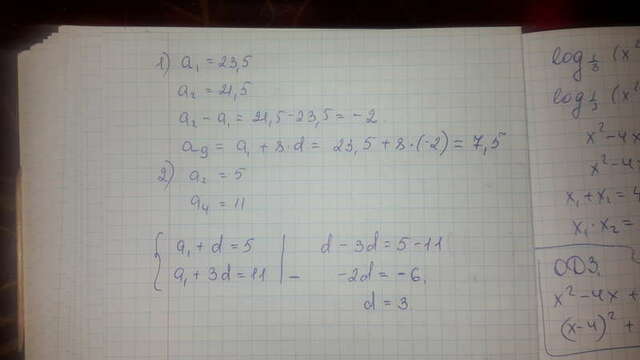 1) a₁ = 23,5
a₂ = 21,5
a₂ - a₁ = 21,5 - 23,5 = -2
a₉ = a₁ + 8·d = 23,5 + 8·(-2) = 7,5
2) a₂ = 5
a₄ = 11
{ a₁ + d = 5 | d - 3d = 5 - 11
a₁ + 3d = 11 | - -2d = -6
d = 3
log 1/3 (x²
log 1/3 (x²
x² - 4x
x² - 4x
x₁ + x₂ = 4
x₁ · x₂ =
ОДЗ
x² - 4x +
(x-4)² +